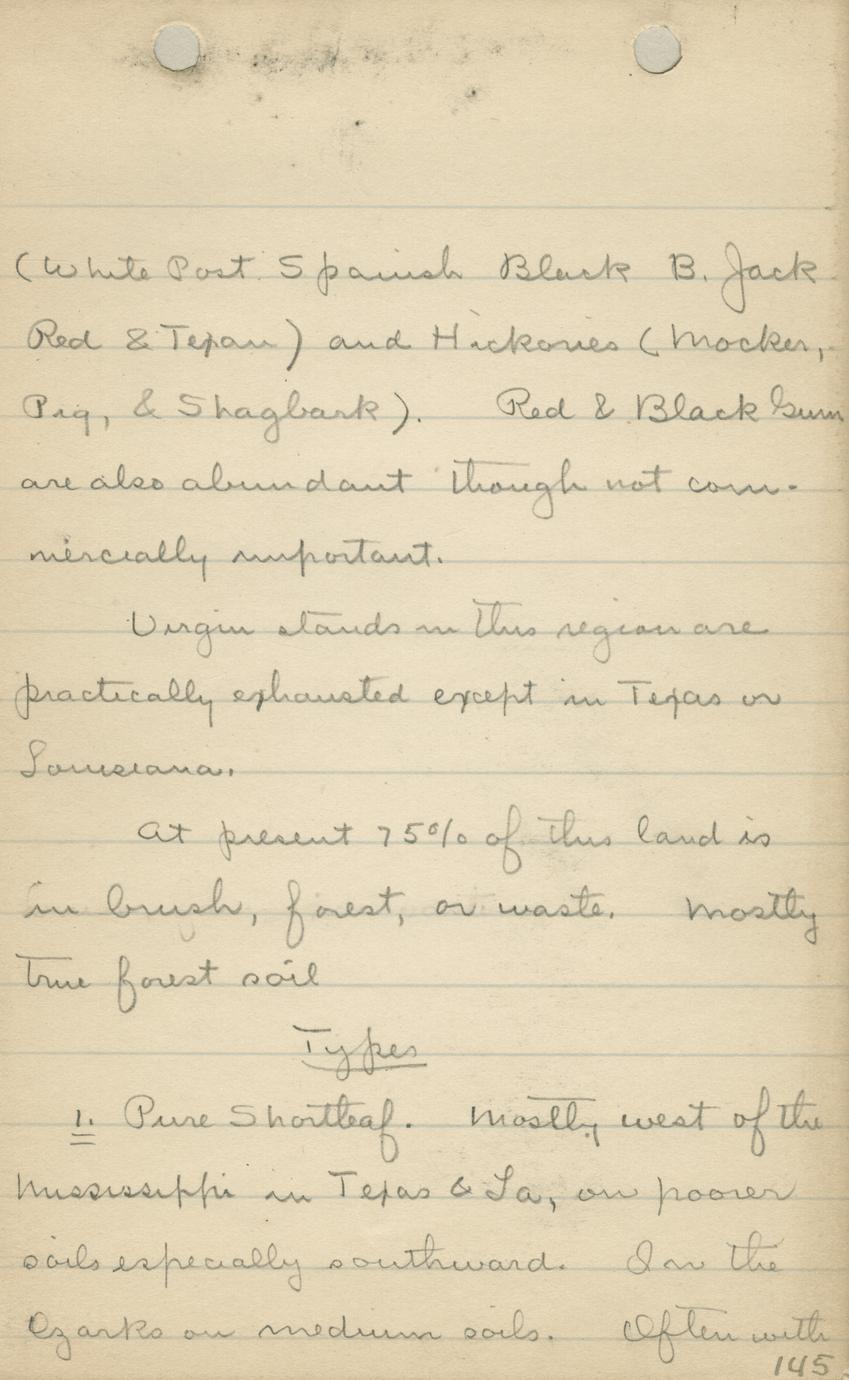 (White Post Spanish Black B. Jack
Red & Texan) and Hickories (Mocker,
Pig, & Shagbark). Red & Black Gum
are also abundant though not com-
mercially important.
Virgin stands in this region are
practically exhausted except in Texas or
Louisiana.
At present 75% of this land is
in brush, forest, or waste. Mostly
true forest soil
Types
1. Pure Shortleaf. Mostly west of the
Mississippi in Texas & La, on poorer
soils especially southward. In the
Ozarks on medium soils. Often with
145